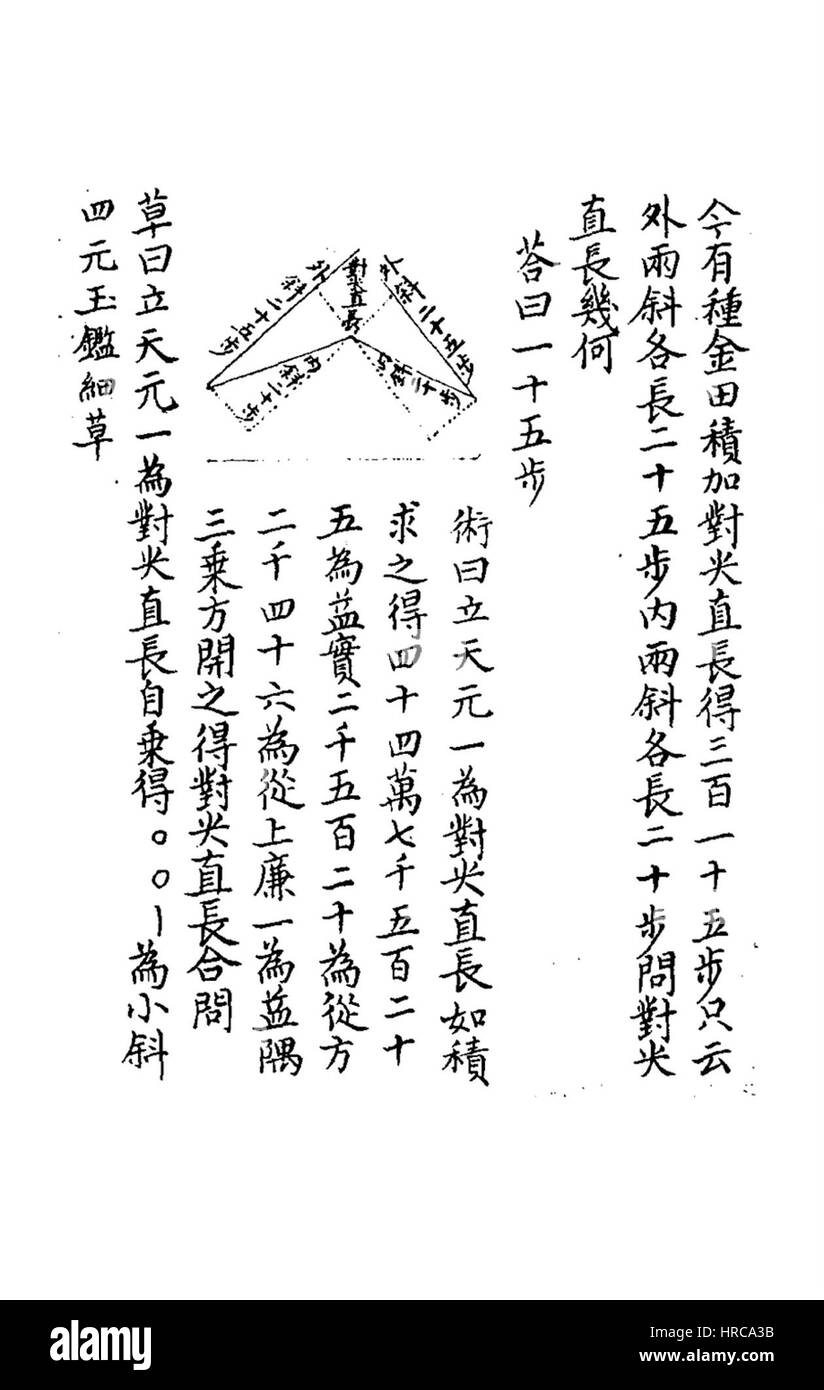 今有種金田積加對尖直長得三百一十五步只云
外兩斜各長二十五步内兩斜各長二十步問對尖
直長幾何
荅曰一十五步
外斜二十五步
對尖直長
外斜二十五步
内斜二十步
内斜二十步
術曰立天元一為對尖直長如積
求之得四十四萬七千五百二十
五為益實二千五百二十為從方
二千四十六為從上廉一為益隅
三乗方開之得對尖直長合問
草曰立天元一為對尖直長自乗得〇〇| 為小斜
四元玉鑑細草
alamy
alamy
Image ID: HRCA3B
www.alamy.com